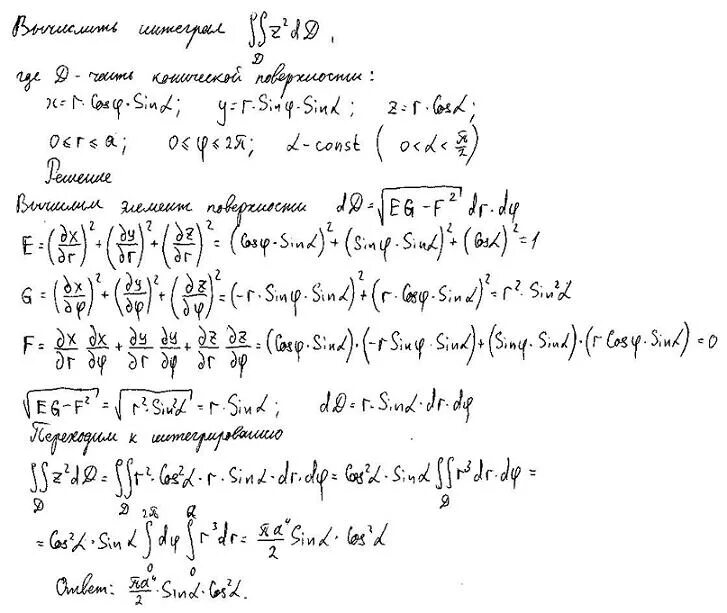 Вычислить интеграл ∬_D z² dD,
где D - часть конической поверхности:
x = r·Cosφ·Sinα; y = r·Sinφ·Sinα; z = r·Cosα;
0 ≤ r ≤ a; 0 ≤ φ ≤ 2π; α - const (0 < α < π/2)
Решение
Вычислим элемент поверхности dD = √(EG - F²) dr·dφ
E = (∂x/∂r)² + (∂y/∂r)² + (∂z/∂r)² = (Cosφ·Sinα)² + (Sinφ·Sinα)² + (Cosα)² = 1
G = (∂x/∂φ)² + (∂y/∂φ)² + (∂z/∂φ)² = (-r·Sinφ·Sinα)² + (r·Cosφ·Sinα)² = r²·Sin²α
F = ∂x/∂r ∂x/∂φ + ∂y/∂r ∂y/∂φ + ∂z/∂r ∂z/∂φ = (Cosφ·Sinα)·(-r Sinφ·Sinα) + (Sinφ·Sinα)·(r Cosφ·Sinα) = 0
√(EG - F²) = √(r²·Sin²α) = r·Sinα; dD = r·Sinα·dr·dφ
Переходим к интегрированию
∬_D z² dD = ∬_D r²·Cos²α·r·Sinα·dr·dφ = Cos²α·Sinα ∬_D r³ dr·dφ =
= Cos²α·Sinα ∫_0^{2π} dφ ∫_0^a r³ dr = πa⁴/2 Sinα·Cos²α
Ответ: πa⁴/2·Sinα·Cos²α.